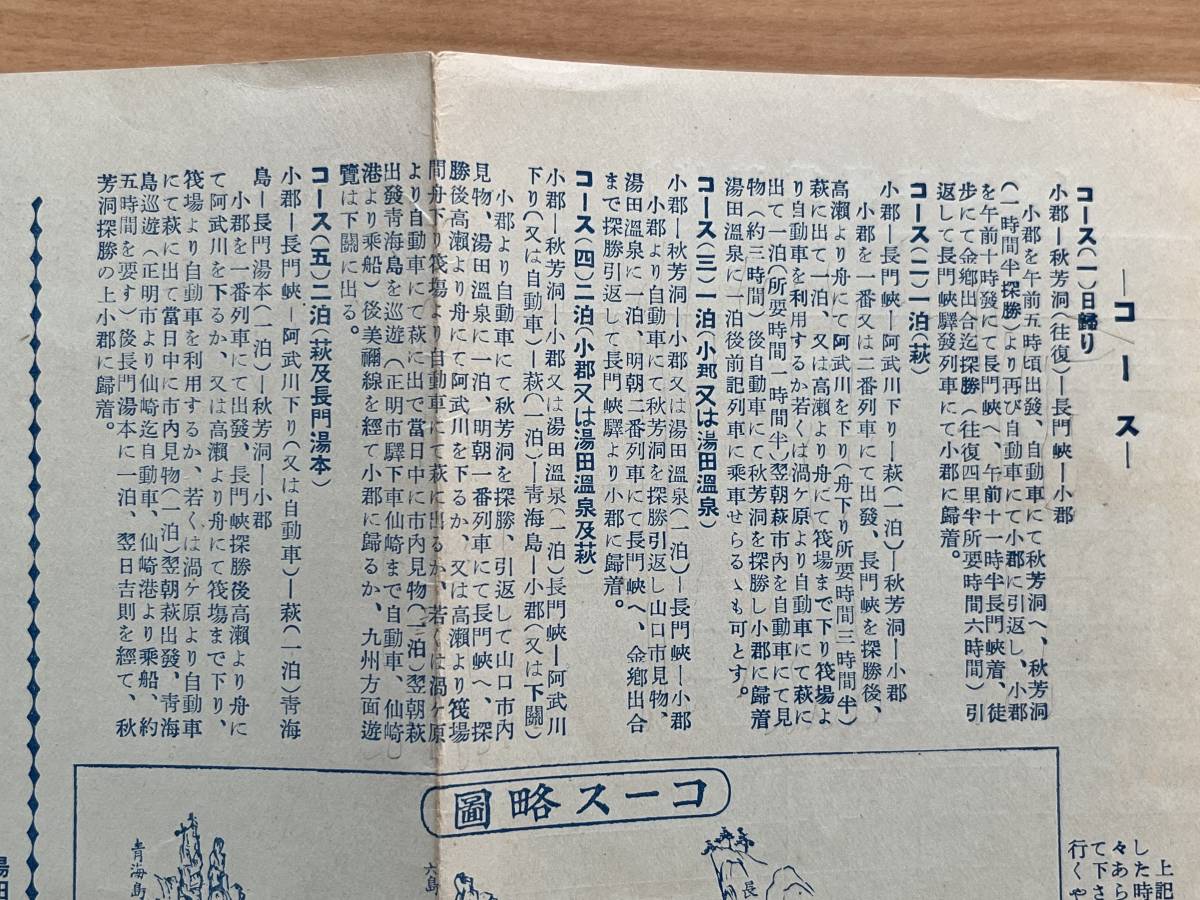 ―コース―
コース(一)日歸り
小郡―秋芳洞(往復)―長門峽―小郡
小郡を午前五時頃出發、自動車にて秋芳洞へ、秋芳洞
(一時間半探勝)より再び自動車にて小郡に引返し、小郡
を午前十時發にて長門峽へ、午前十一時半長門峽着、徒
步にて金鄕出合迄探勝(往復四里半所要時間六時間)引
返して長門峽驛發列車にて小郡に歸着。
コース(二)一泊(萩)
小郡―長門峽―阿武川下り―萩(一泊)―秋芳洞―小郡
小郡を一番又は二番列車にて出發、長門峽を探勝後、
高瀨より舟にて阿武川を下り(舟下り所要時間三時間半)
萩に出て一泊、又は高瀨より舟にて筏場まで下り筏場よ
り自動車を利用するか若くは渦ヶ原より自動車にて萩に
出て一泊(所要時間一時間半)翌朝萩市內を自動車にて見
物(約三時間)後自動車にて秋芳洞を探勝し小郡に歸着
湯田溫泉に一泊後前記列車に乘車せらるゝも可とす。
コース(三)一泊(小郡又は湯田溫泉)
小郡―秋芳洞―小郡又は湯田溫泉(一泊)―長門峽―小郡
小郡より自動車にて秋芳洞を探勝引返し山口市見物、
湯田溫泉に一泊、明朝二番列車にて長門峽へ、金鄕出合
まで探勝引返して長門峽驛より小郡に歸着。
コース(四)二泊(小郡又は湯田溫泉及萩)
小郡―秋芳洞―小郡又は湯田溫泉(一泊)長門峽―阿武川
下り(又は自動車)―萩(一泊)―靑海島―小郡(又は下關)
小郡より自動車にて秋芳洞を探勝、引返して山口市內
見物、湯田溫泉に一泊、明朝一番列車にて長門峽へ、探
勝後高瀨より舟にて阿武川を下るか、又は高瀨より筏場
間舟下り筏場より自動車にて萩に出るか、若くは渦ヶ原
より自動車にて萩に出で當日中に市內見物(一泊)翌朝萩
出發靑海島を巡遊(正明市驛下車仙崎まで自動車、仙崎
港より乘船)後美禰線を經て小郡に歸るか、九州方面遊
覽は下關に出る。
コース(五)二泊(萩及長門湯本)
小郡―長門峽―阿武川下り(又は自動車)―萩(一泊)靑海
島―長門湯本(一泊)―秋芳洞―小郡
小郡を一番列車にて出發、長門峽探勝後高瀨より舟に
て阿武川を下るか、又は高瀨より舟にて筏場まで下り、
筏場より自動車を利用するか、若くは渦ヶ原より自動車
にて萩に出て當日中に市內見物(一泊)翌朝萩出發、靑海
島巡遊(正明市より仙崎迄自動車、仙崎港より乘船、約
五時間を要す)後長門湯本に一泊、翌日吉則を經て、秋
芳洞探勝の上小郡に歸着。
コース略圖
長
六島
靑海島
上記
した時
々あら
て下さ
行くや
湯田